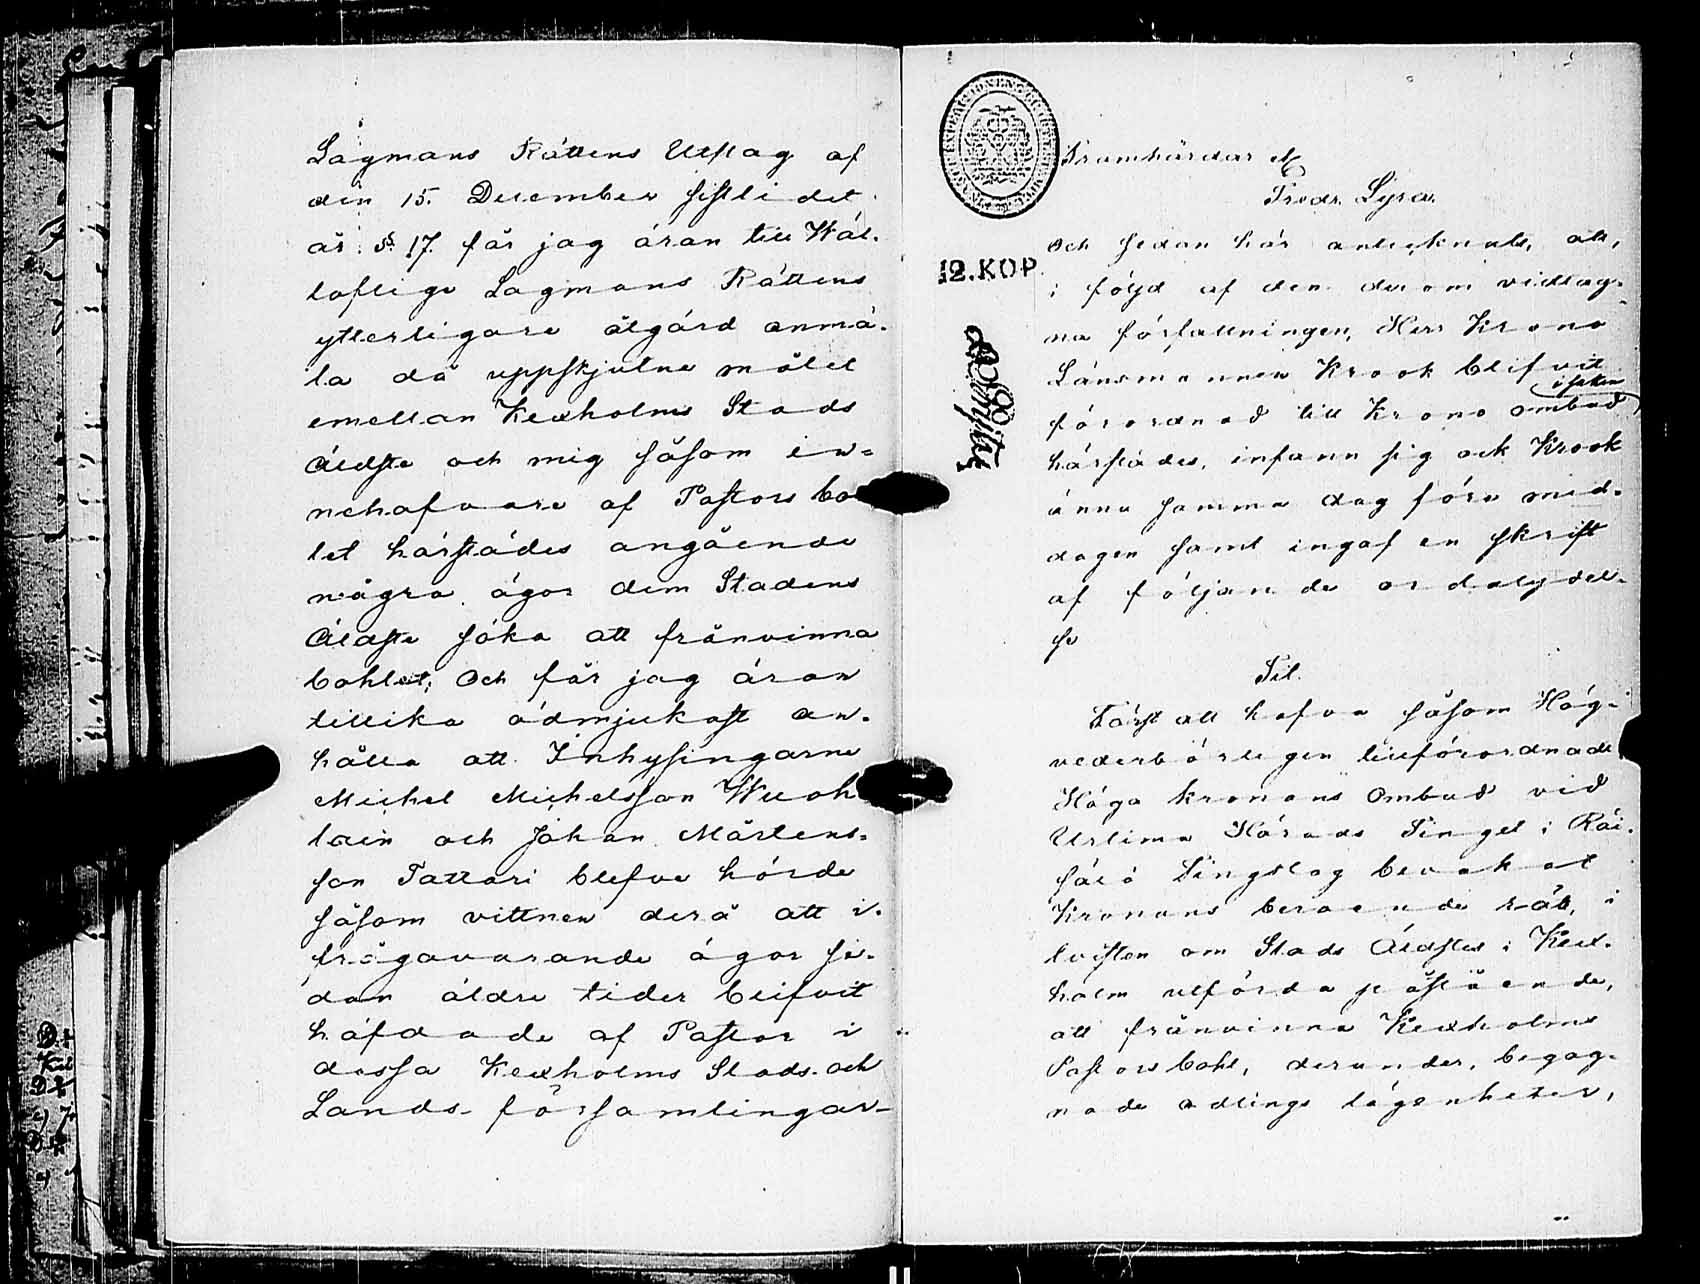 Lagmans Rättens Utslag af
den 15. December sistlidet
år § 17. får jag äran till Wäl-
loflige Lagmans Rättens
ytterligare åtgärd anmä-
la då uppskjutne målet
emellan Kexholms Stads
Äldste och mig såsom in-
nehafvare af Pastors bo-
let härstädes angående
några ägor dem Stadens
Äldste söka att frånvinna
bohlet; Och får jag äran
tillika ödmjukast an-
hålla att Inhysingarne
Michel Michelsson Wuoh
lain och Johan Mårtens-
son Tattari blefve hörde
såsom vittnen derå att i
frågavarande ägor se-
dan äldre tider blifvit
häfdade af Pastor i
dessa Kexholms Stads och
Lands- församlingar
Framhärdar etc
Fredr. Lyra.
12. KOP.
Och sedan här antecknats, att,
i följd af den derom vidtag-
na författningen, Herr Krono
Länsmannen Krook blifvit
i saken
förordnad till Krono ombud
härstädes, infann sig ock Krook
ännu samma dag före mid-
dagen samt ingaf en skrift
af följande ordalydel-
se
Til.
Täckt att hafva såsom Hög-
vederbörligen tillförordnadt
Höga kronans Ombud vid
Urtima Härads Tinget i Räi-
sälä Tingslag bevakat
Kronans beroende rätt, i
tvisten om Stads Äldstes i Kex-
holm utförda påstående,
att frånvinna Kexholms
Pastorsbohl, derunder, begag-
nade odlings lägenheter,